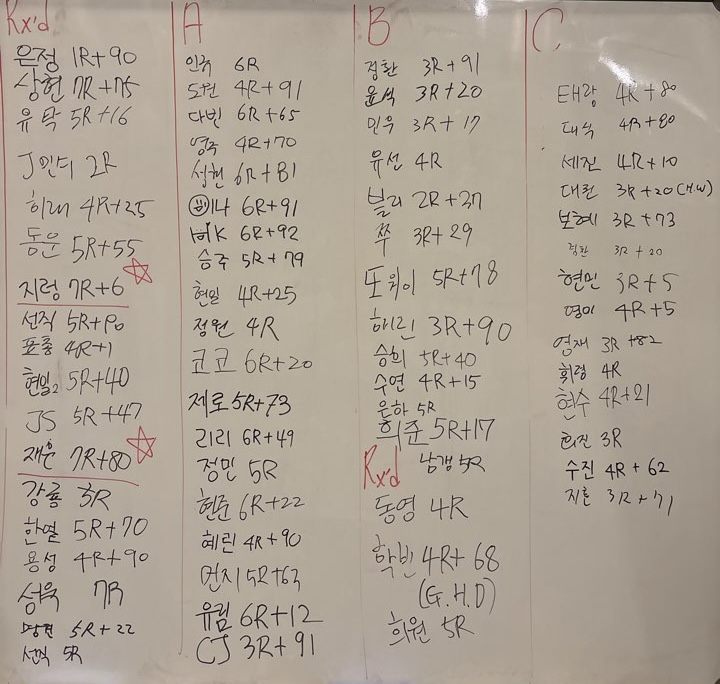 Rx'd
은정 1R+90
상현 7R+75
유탁 5R+16
J민디 2R
히래 4R+25
동운 5R+55
지령 7R+6
선직 5R+90
표룡 4R+1
현일2 5R+40
JS 5R+47
재훈 7R+80
강룡 3R
한열 5R+70
용성 4R+90
성욱 7R
5R+22
선직 5R
A
인규 6R
도원 4R+91
다빈 6R+65
영주 4R+70
성현 6R+81
미나 6R+91
HK 6R+92
승주 5R+79
현일 4R+25
정원 4R
코코 6R+20
제로 5R+73
리리 6R+49
정민 5R
현준 6R+22
혜린 4R+90
먼지 5R+63
유림 6R+12
CJ 3R+91
B
정환 3R+91
윤석 3R+20
민우 3R+17
유선 4R
블리 2R+37
쭈 3R+29
또위이 5R+78
해린 3R+90
승희 5R+40
수연 4R+15
은하 5R
희준 5R+17
남갱 5R
Rx'd
동영 4R
학빈 4R+68
(G.H.D)
희원 5R
C
태랑 4R+80
대식 4R+80
세진 4R+10
대원 3R+20 (H.W)
보혜 3R+73
3R+20
현민 3R+5
영이 4R+5
영재 3R+82
휘령 4R
현수 4R+21
희진 3R
수진 4R+62
지훈 3R+71